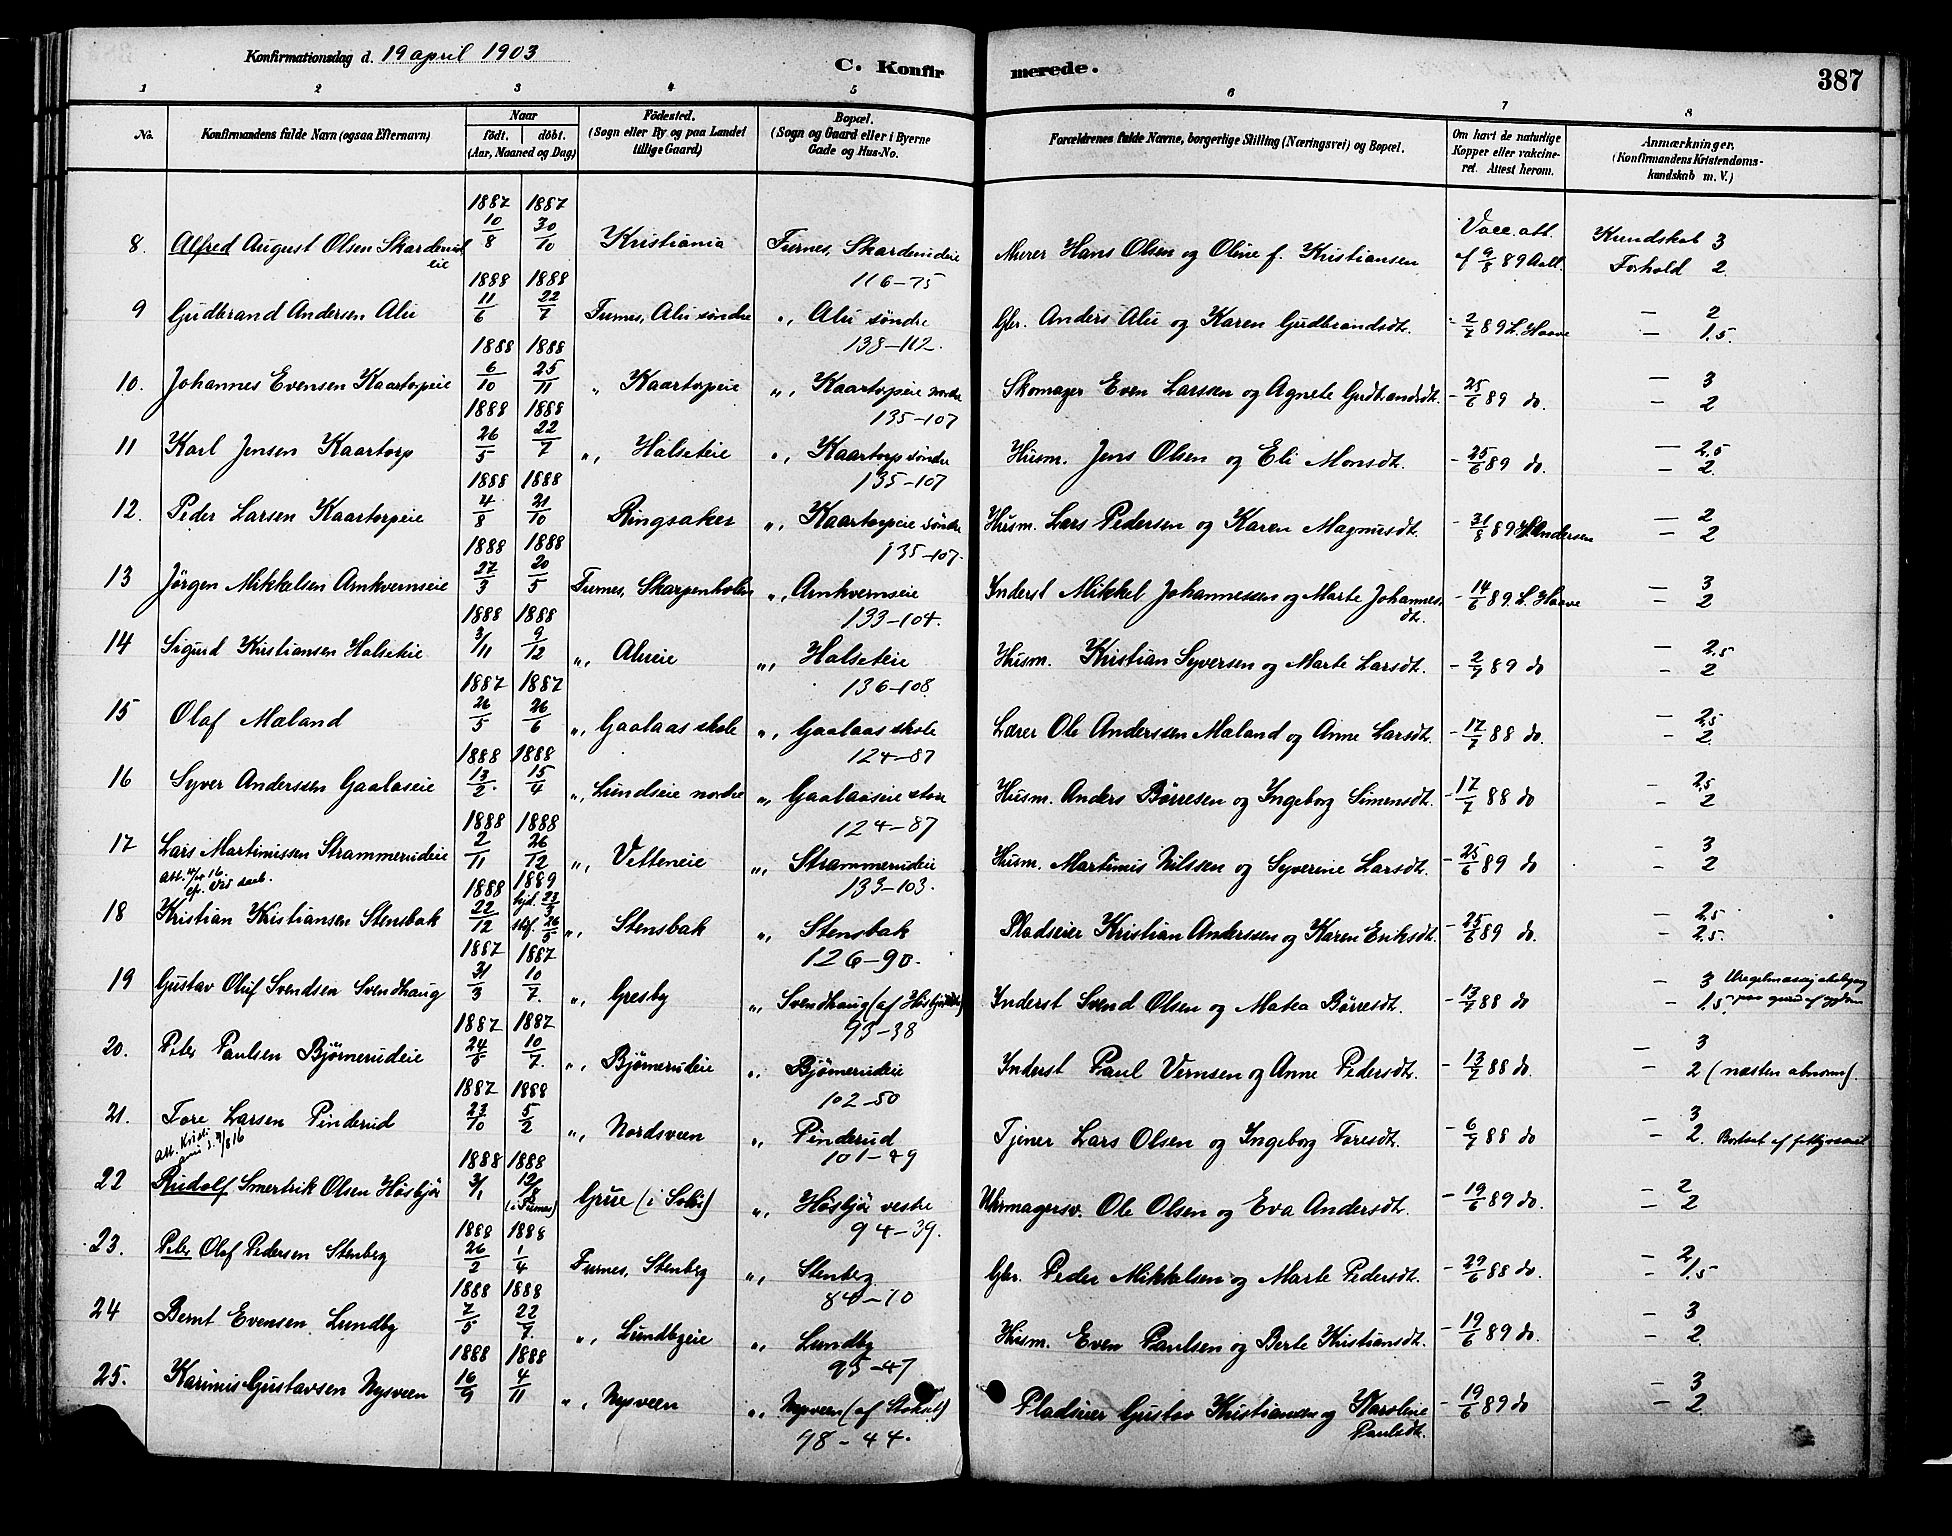 Konfirmationsdag d. 19 april 1903
C. Konfirmerede.
387
1 2 3 4 5 6 7 8
No.
Konfirmandens fulde Navn (ogsaa Efternavn)
Naar
født. døbt.
(Aar, Maaned og Dag)
Fødested.
(Sogn eller By og paa Landet
tillige Gaard)
Bopæl.
(Sogn og Gaard eller i Byerne
Gade og Hus-No.
Forældrenes fulde Navne, borgerlige Stilling (Næringsvei) og Bopæl.
Om havt de naturlige
Kopper eller vakcine-
ret. Attest herom.
Anmærkninger.
(Konfirmandens Kristendoms-
kundskab m. V.)
1887 1887
8. Alfred August Olsen Skarderud eie 10/8 30/10 Kristiania Furnes, Skarderudeie 116-75 Murer Hans Olsen og Oline f. Kristiansen Vacc. att. af 9/8 89 Kundskab 3 Forhold 2
1888 1888
9 Gudbrand Andersen Alu 11/6 22/7 Furnes, Alu søndre „ Alu søndre 138-112. Gbr. Anders Alu og Karen Gudbrandsdt. - 2/7 89 L. Haave — 2 — 1.5.
1888 1888
10. Johannes Evensen Kaartorpeie 6/10 25/11 „ Kaartorpeie „ Kaartorpeie nordre 135-107 Skomager Even Larssen og Agnete Gudbrandsdt. - 25/6 89 do. — 3 — 2
1888 1888
11 Karl Jensen Kaartorp 26/5 22/7 „ Halseteie „ Kaartorp søndre 135-107 Husm. Jens Olsen og Eli Monsdt. - 25/6 89 do. — 2,5 — 2.
1888 1888
12. Peder Larsen Kaartorpeie 4/8 21/10 Ringsaker „ Kaartorpeie søndre 135-107. Husm. Lars Pedersen og Karen Magnusdt. - 31/8 89 Andersen — 2 — 2
1888 1888
13 Jørgen Mikkelsen Arnkvernseie 27/3 20/5 Furnes, Skarpenholen „ Arnkvernseie 133-104. Inderst Mikkel Johannessen og Marte Johannesdt. - 14/6 89. L. Haave — 3 — 2
1888 1888
14 Sigurd Kristiansen Halseteie 3/11 9/12 „ Alueie „ Halseteie 136-108. Husm. Kristian Syversen og Marte Larsdt. - 2/7 89 do — 2,5 — 2
1887 1887
15 Olaf Mæland 26/5 26/6 „ Gaalaas skole „ Gaalaas skole 124-87 Lærer Ole Anderssen Mæland og Anne Larsdt. - 17/7 88 do. — 2,5 — 2.
1888 1888
16 Syver Anderssen Gaalaseie 13/2. 15/4 „ Lundseie nordre „ Gaalaaseie store 124-87 Husm. Anders Børresen og Ingeborg Simensdt. - 17/7 88 do — 2,5 — 2
1888 1888
17 Lars Martinussen Strammerudeie 2/11 26/12 „ Vetteneie „ Strammerudeie 133-103. Husm. Martinus Nilssen og Syverine Larsdt. - 25/6 89 do — 3 — 2
1888 1889
18 Kristian Kristiansen Stensbak 22/12 hjd. 23/3 stf. 26/5 „ Stensbak „ Stensbak 126-90. Pladseier Kristian Anderssen og Karen Eriksdt. - 25/6 89 do. — 2,5 — 2,5.
1887 1887
19 Gustav Oluf Svendsen Svendhaug 31/3 10/7. „ Gresby „ Svendhaug 93-38 Inderst Svend Olsen og Matea Børresdt. - 13/7 88 do — 3 — 1.5
1887 1887
20. Peter Paulsen Bjørnerudeie 24/5 10/7. „ Bjørnerudeie „ Bjørnerudeie 102-50 Inderst Paul Vernsen og Anne Pedersdt. - 13/7 88 do. — 3 — 2 (næsten abnorm).
1887 1888
21. Tore Larsen Pinderud 23/10 5/2 „ Nordsveen „ Pinderud 101-49 Tjener Lars Olsen og Ingeborg Toresdt. - 6/7 88 do — 3 — 2.
1888 1888
22 Rudolf Olsen Høsbjør 3/1 12/8 (i Furnes) Grue (i Solør) „ Høsbjør vestre 94-39. Uhrmagersv. Ole Olsen og Eva Andersdt. - 19/6 89 do. — 2 — 2
1888 1888
23. Peter Olaf Pedersen Stenberg 26/2 1/4 Furnes, Stenberg „ Stenberg 84-10 Gbr. Peder Mikkelsen og Marte Pedersdt. - 29/6 88 do. — 2, — 1.5
1888 1888
24 Bernt Evensen Lundby 7/5 22/7. „ Lundbyeie „ Lundby 95-47 Husm. Even Paulsen og Berte Kristiansdt. - 19/6 89 do. — 3 — 2.
1888 1888
25. Karinius Gustavsen Nysveen 16/9 4/11 „ Nysveen „ Nysveen 98-44. Pladseier Gustav Kristiansen og Karoline Paulsdt. - 19/6 89 do — 3 — 2.